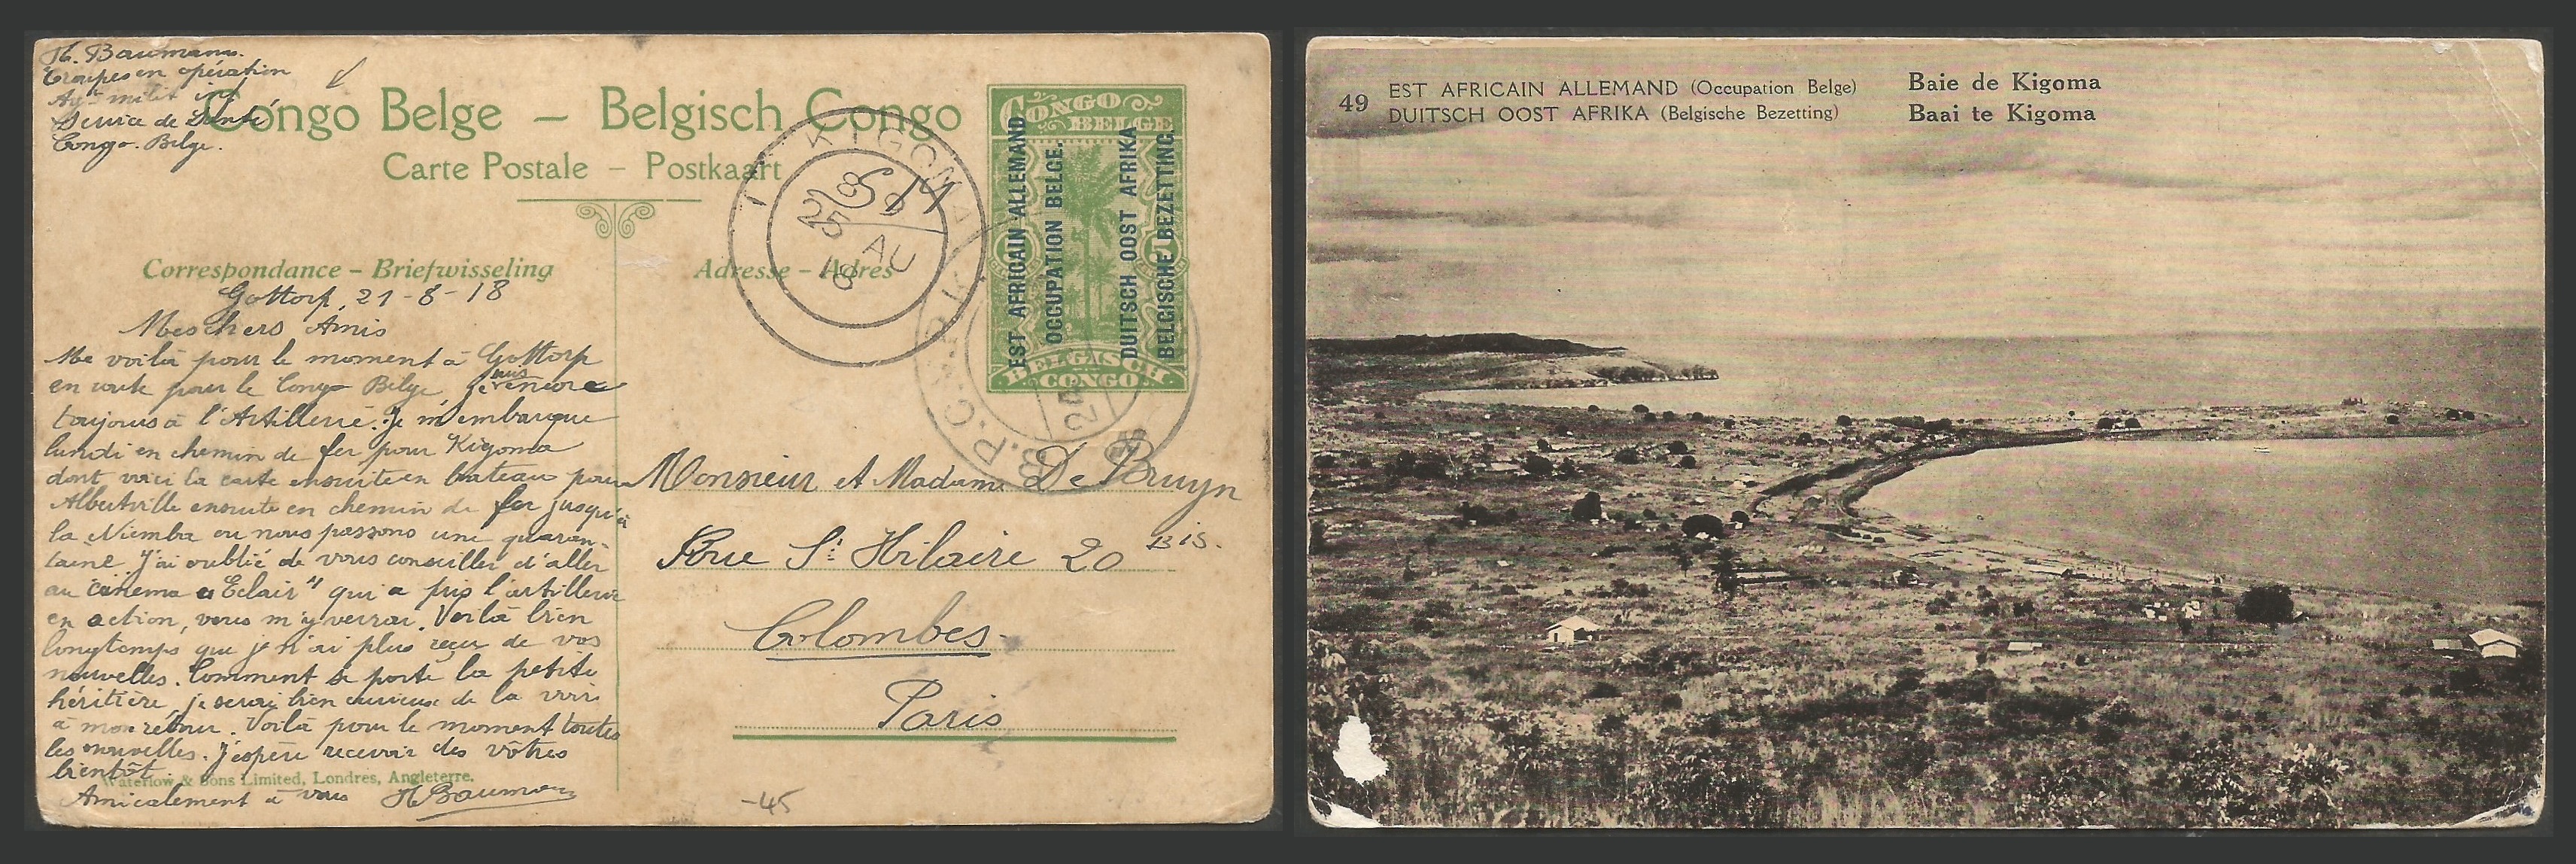 H. Baumann.
Troupes en opération
Ay-milit inf
Service de Santé
Congo-Belge.
Congo Belge – Belgisch Congo
Carte Postale – Postkaart
CONGO
BELGE
EST AFRICAIN ALLEMAND
OCCUPATION BELGE.
DUITSCH OOST AFRIKA
BELGISCHE BEZETTING.
5
5
BELGISCH
CONGO
KIGOMA
25
AU
18
B.P.C.
Correspondance – Briefwisseling
Gottorp, 21-8-18
Mes chers Amis
Me voilà pour le moment à Gottorp
en route pour le Congo Belge, je suis encore
toujours à l'Artillerie. Je m'embarque
lundi en chemin de fer pour Kigoma
dont voici la carte ensuite en bateau pour
Albertville ensuite en chemin de fer jusqu'à
la Niemba ou nous passons une quaran-
taine. J'ai oublié de vous conseiller d'aller
au cinema "Eclair" qui a pris l'artillerie
en action, vous m'y verrai. Voilà bien
longtemps que je n'ai plus reçu de vos
nouvelles. Comment se porte la petite
héritière, je serai bien curieux de la voir
à mon retour. Voilà pour le moment toutes
les nouvelles. J'espère recevoir des vôtres
bientôt.
Waterlow & Sons Limited, Londres, Angleterre.
Amicalement à vous H Baumann
Adresse – Adres
Monsieur et Madame De Bruyn
Rue St Hilaire 20 Bis.
Colombes
Paris
-45
49 EST AFRICAIN ALLEMAND (Occupation Belge) Baie de Kigoma
DUITSCH OOST AFRIKA (Belgische Bezetting) Baai te Kigoma